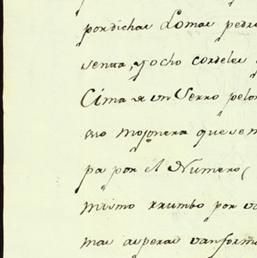 por dichas Lomas pedre
senta, y ocho cordeles
Cima de un Serro pelon
mo mojonera que se m
pa por el Numero
mismo rrumbo por
mas asperas van forma